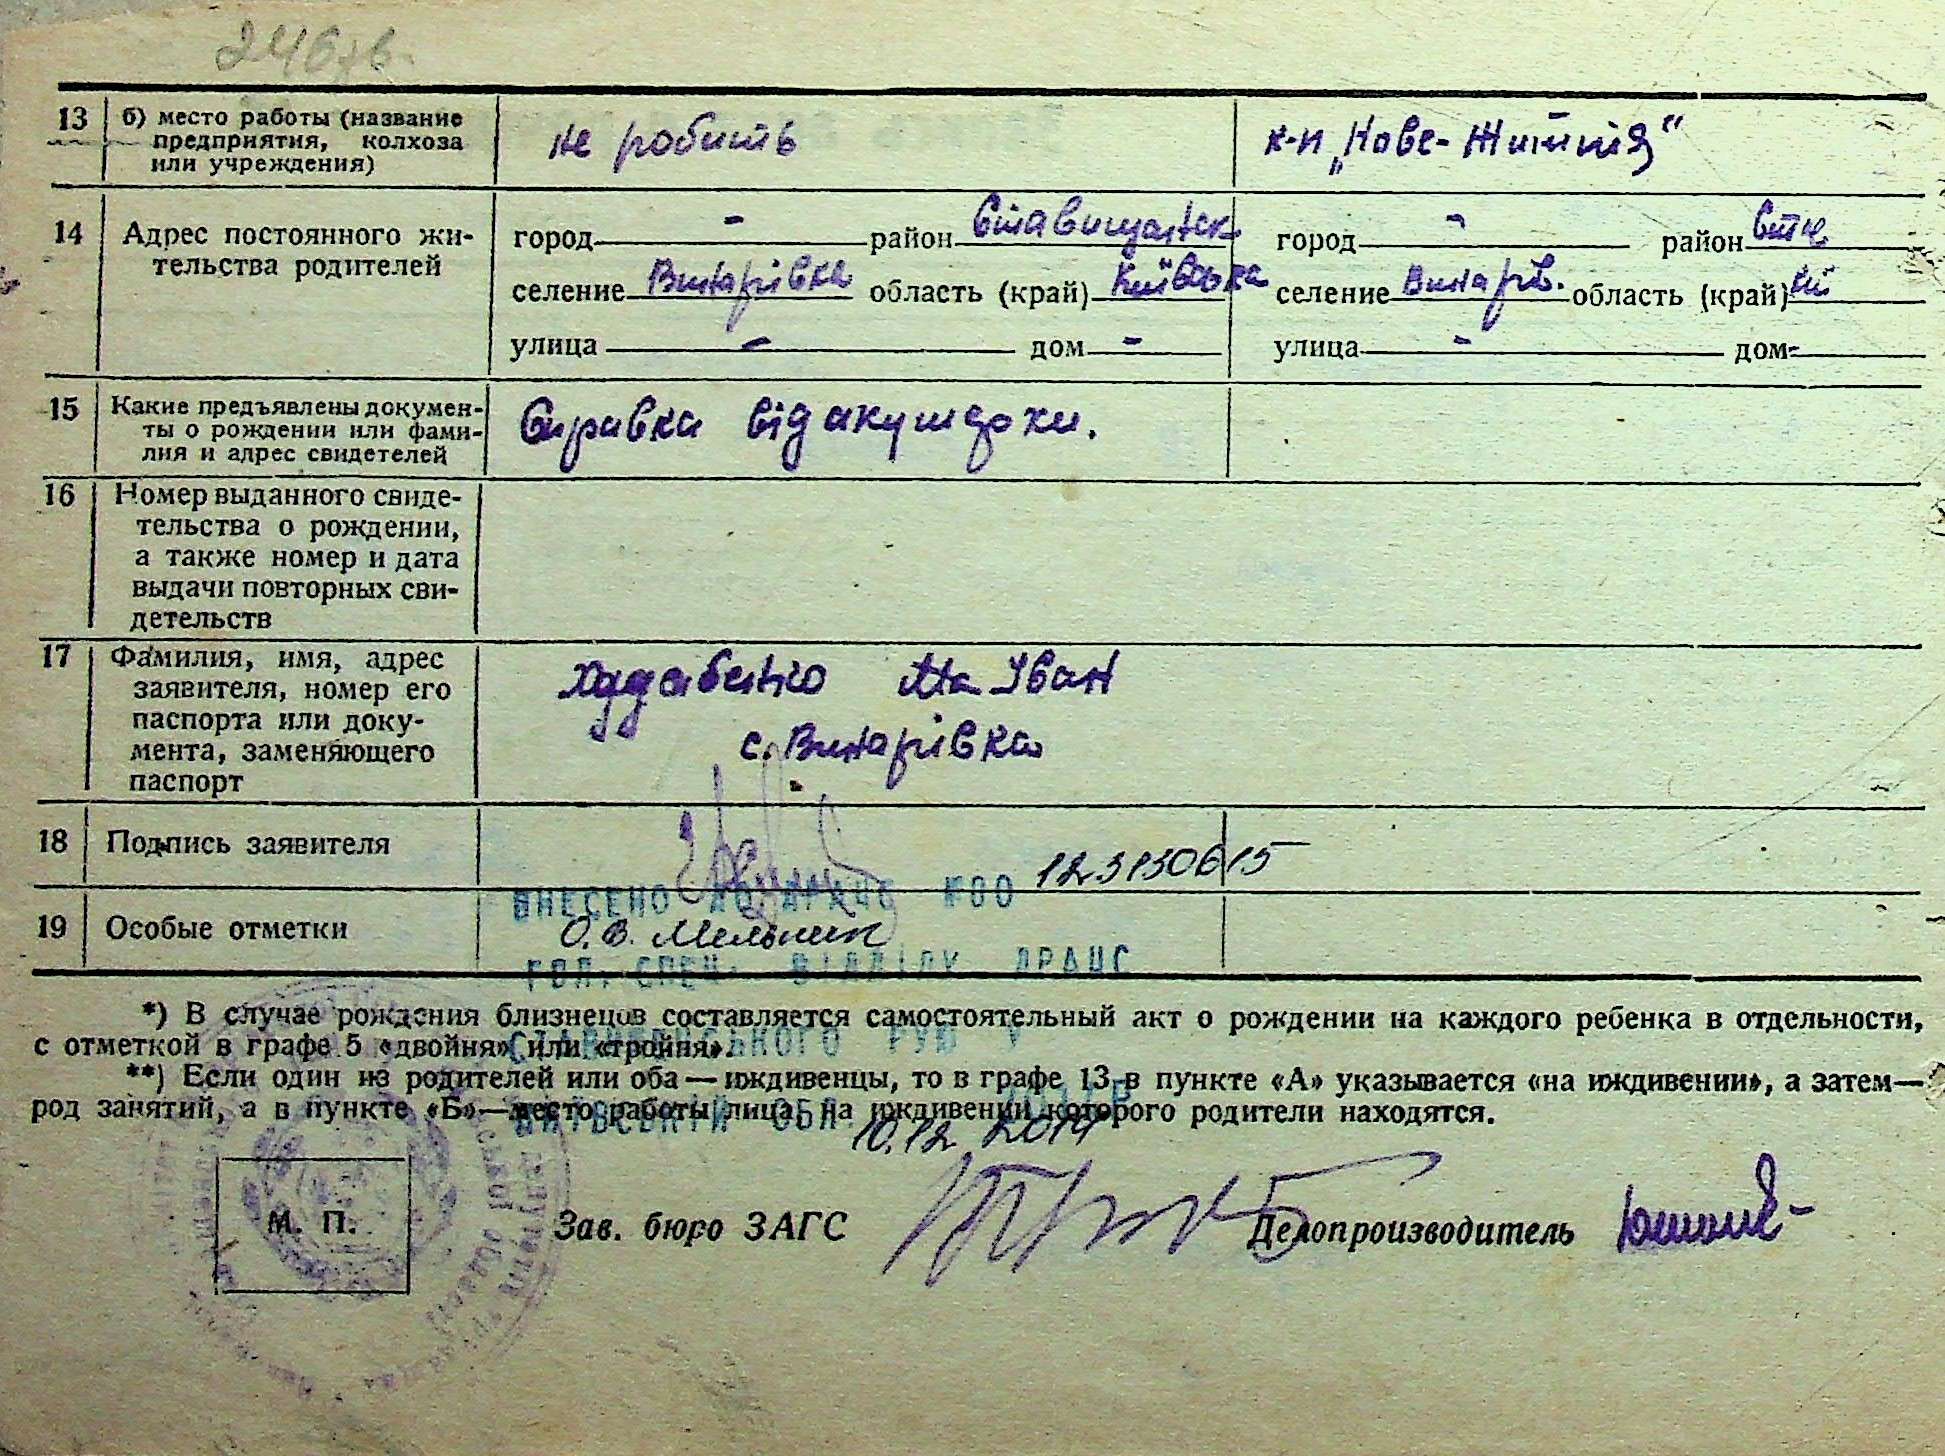 246зв.
13 б) место работы (название предприятия, колхоза или учреждения) не робить к-п „Нове-Життя“
14 Адрес постоянного жительства родителей
город - район Ставищанськ город - район Ств
селение Винарівка область (край) Київська селение Винарів. область (край) Киї
улица - дом - улица - дом -
15 Какие предъявлены докумен-
ты о рождении или фами-
лия и адрес свидетелей
Справка від акушорки.
16 Номер выданного свиде-
тельства о рождении,
а также номер и дата
выдачи повторных сви-
детельств
17 Фамилия, имя, адрес
заявителя, номер его
паспорта или доку-
мента, заменяющего
паспорт
Иван
с. Винарівка
18 Подпись заявителя
ВНЕСЕНО ДО ДРАЦС №00 123130615
19 Особые отметки О.В. Мельник
ГОЛ. СПЕЦ. ВІДДІЛУ ДРАЦС
*) В случае рождения близнецов составляется самостоятельный акт о рождении на каждого ребенка в отдельности,
с отметкой в графе 5 «двойня» или «тройня».
СТАВИЩЕНСЬКОГО РУЮ У
**) Если один из родителей или оба — иждивенцы, то в графе 13 в пункте «А» указывается «на иждивении», а затем —
род занятий, а в пункте «Б» — место работы лица, на иждивении которого родители находятся.
КИЇВСЬКІЙ ОБЛ. 10.12 2014
М. П. Зав. бюро ЗАГС Делопроизводитель